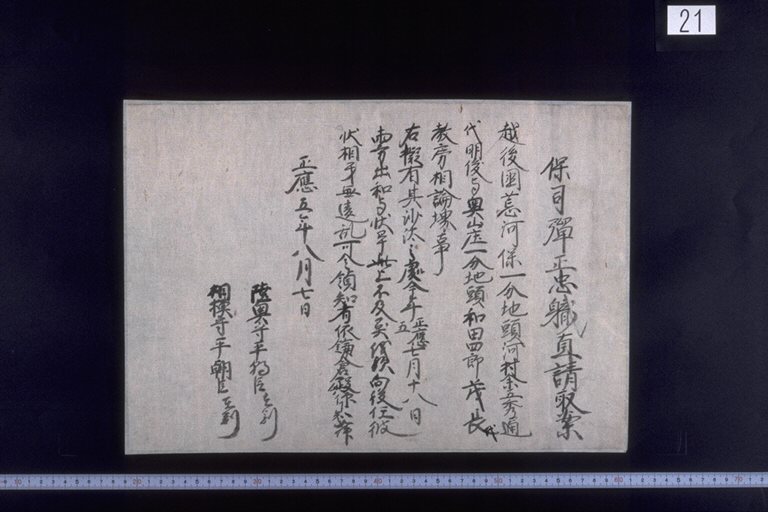 21
保司彈正忠職直請取案
越後國荒河保一分地頭河村余五秀通
代明俊与奥山庄一分地頭和田四郎茂長代
教房相論堺事
右擬有其沙汰之處今年正應五七月十八日
両方出和与状畢此上不及異儀然向後任彼
状相互無違乱可令領知者依鎌倉殿仰下知如件
正應五年八月七日
陸奥守平朝臣在判
相模守平朝臣在判